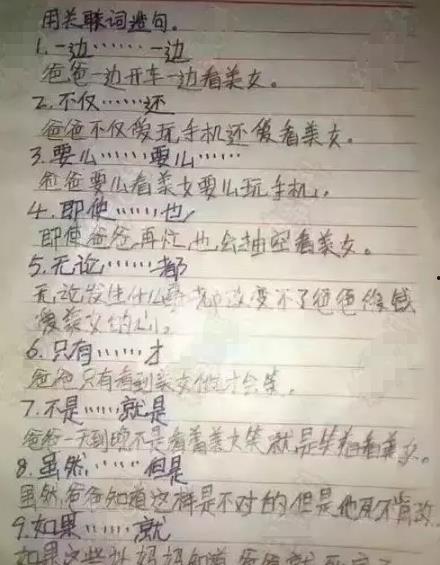 用关联词造句。
1.一边……一边
爸爸一边开车一边看美女。
2.不仅……还
爸爸不仅爱玩手机还爱看美女。
3.要么……要么……
爸爸要么看美女要么玩手机,
4.即使……,也,
即使爸爸,再忙,也会抽空看美女。
5.无论……都
无论发生什么事都改变不了爸爸 钱
爱美女的心。
6.只有……才
爸爸只有看到美女他才会笑,
7.不是……就是
爸爸一天到晚不是看着美女笑就是笑着看美女。
8.虽然,……但是
虽然,爸爸知道这样是不对的但是他死不肯改,
9.如果……就
如果这些让妈妈知道爸爸就死定了